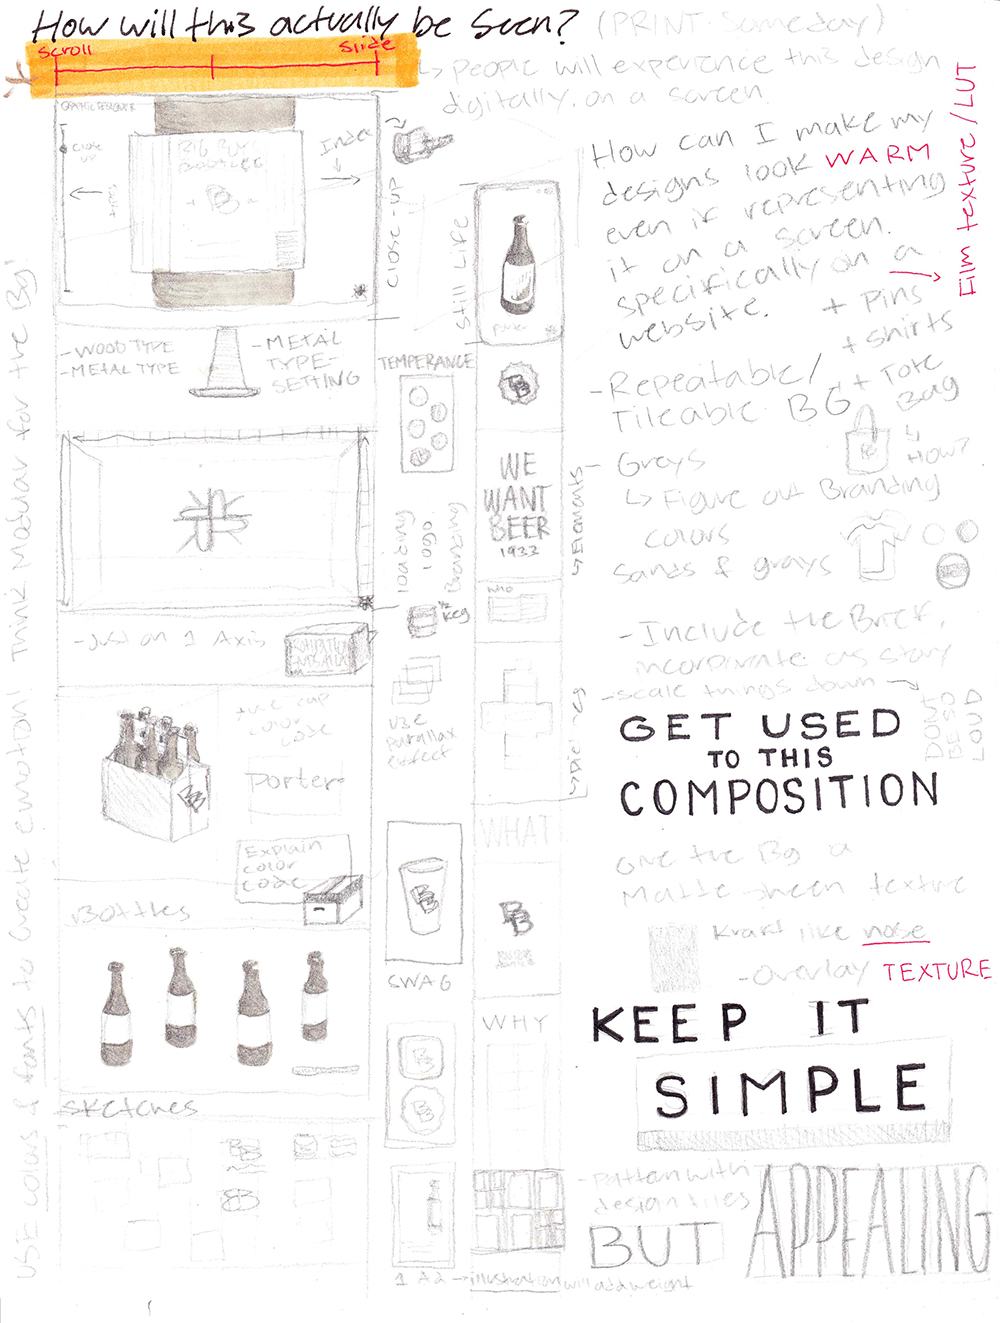 How will this actually be seen? (PRINT Someday)
scroll
slide
↳ people will experience this design
digitally. on a screen.
GRAPHIC DESIGNER
CLOSE UP
Index
CLOSE-UP
Still Life
How can I make my
designs look WARM
even if representing
it on a screen.
specifically on a
website.
Film texture / LUT
+ Pins
+ shirts
+ Tote
Bag
↳ HOW?
-WOOD TYPE
-METAL TYPE
-METAL
TYPE-
SETTING
TEMPERANCE
porter
BB
-Repeatable/
Tileable BG
- Greys
↳ Figure out Branding
colors
Sands & grays
WE
WANT
BEER
1933
↳ Elements
loading
logo.
Branding
-Just on 1 Axis
Keg
WHO
-Include the Brief,
incorporate as story
-scale things down →
DONT
BE SO
LOUD
use
parallax
effect
the cap
color
code
porter
BB
Explain
color
code
Bottles
GET USED
TO THIS
COMPOSITION
WHAT
BB
SWAG
BB
Give the Bg a
Matte sheen texture
Kraft like nose
-overlay TEXTURE
WHY
KEEP IT
SIMPLE
Sketches
BB
BB
BB
BB
-pattern with
design tiles
BUT APPEALING
1 Ad → illustration will add weight
USE colors & fonts to create emotion! Think Modular for the Bg!